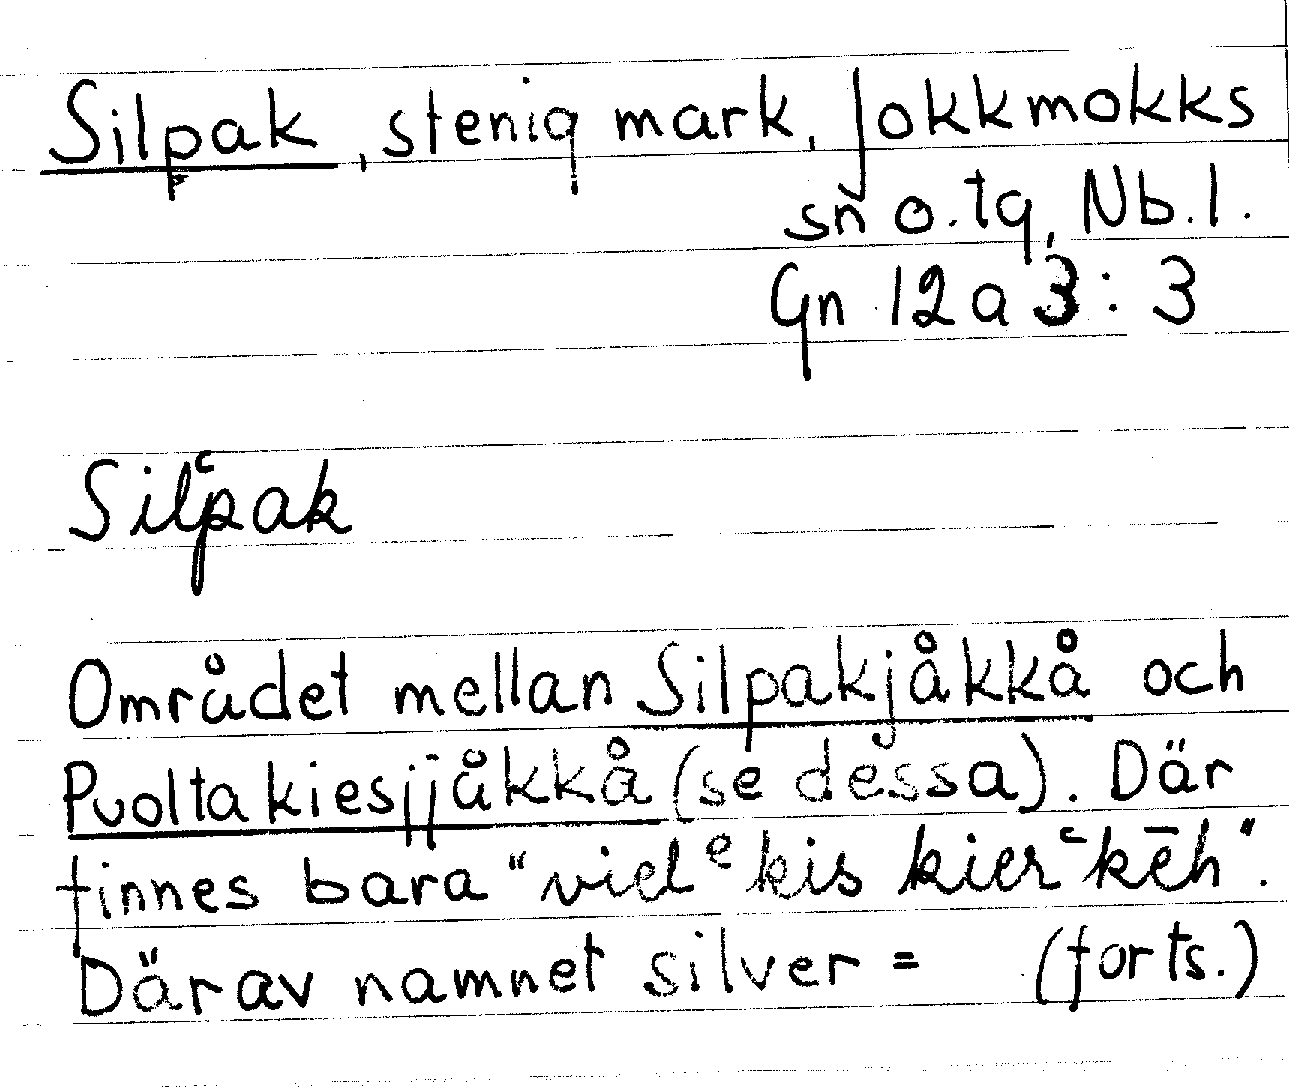 Silpak, stenig mark, Jokkmokks
sn o. tg, Nb.l.
Gn 12 a 3:3
Silᶜpak
Området mellan Silpakjåkkå och
Puoltakiesjjåkkå (se dessa). Där
finnes bara "vielᵉkis kierᶜkēh".
Därav namnet silver = (forts.)